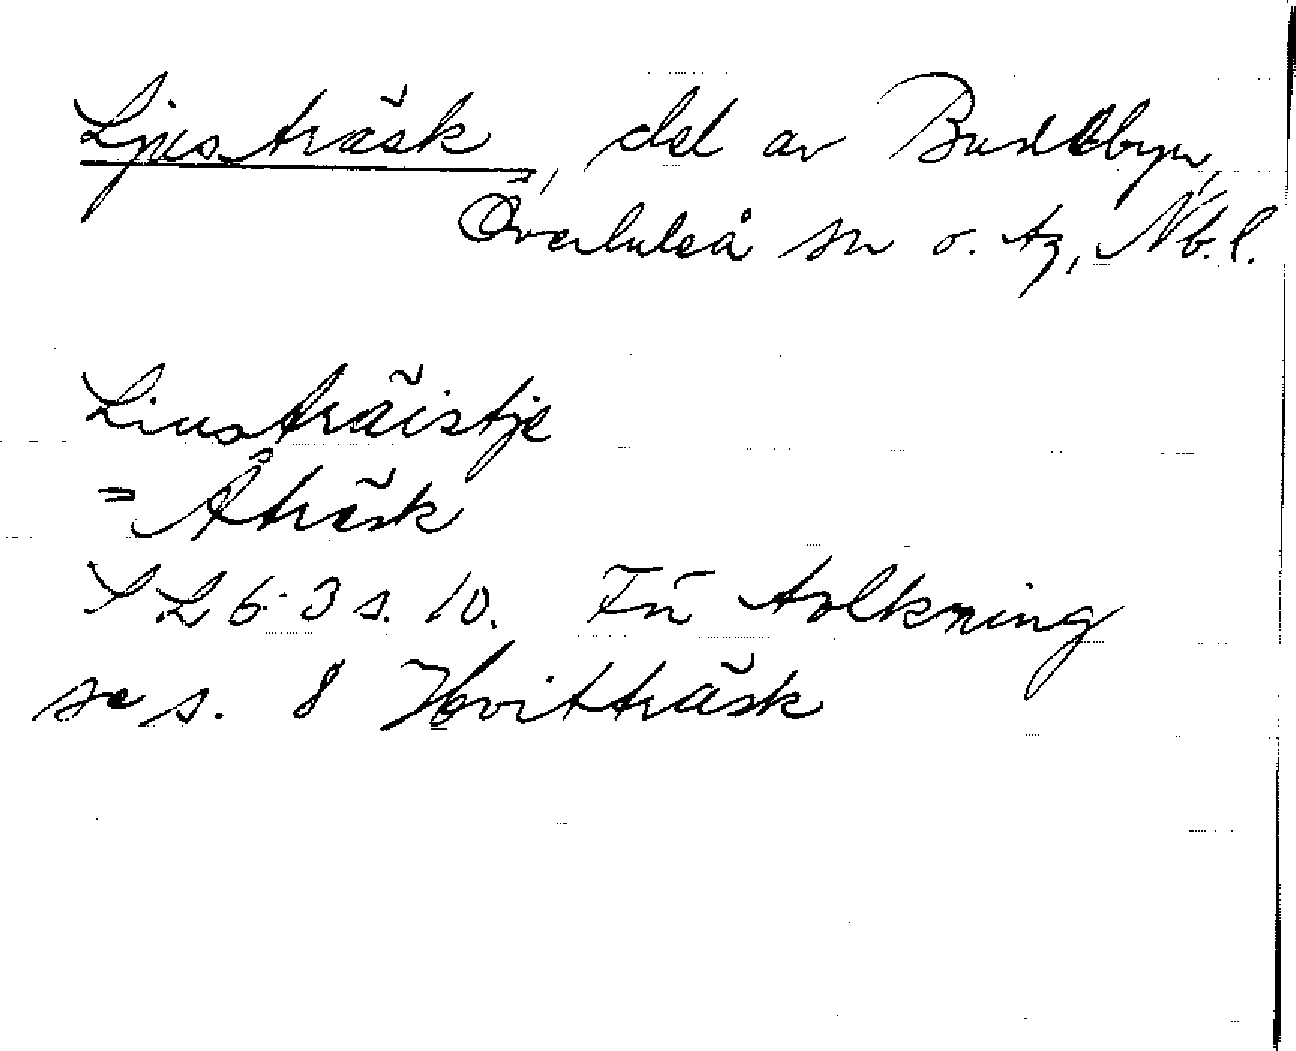 Ljusträsk, del av Buddbyn,
Överluleå sn o. tg, Nb. l.
Liusträistje
= Åträsk
SL 6:3 s. 10. För tolkning
se s. 8 Hvitträsk